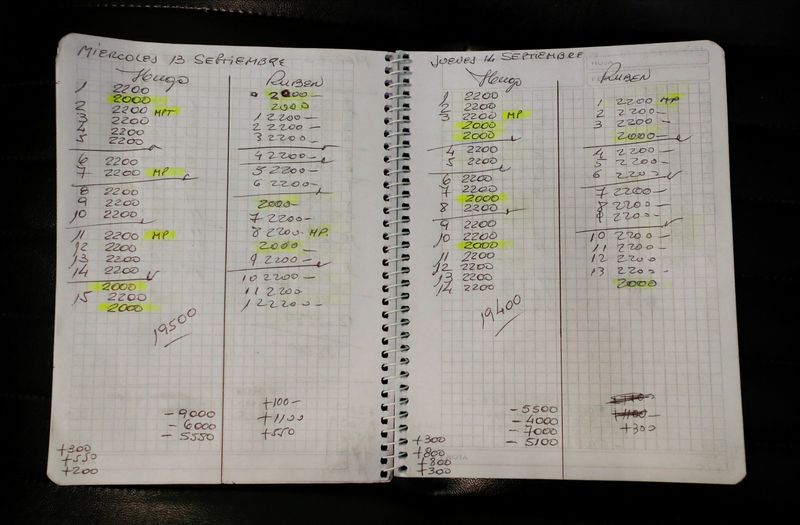 MIERCOLES 13 SEPTIEMBRE
Hugo
1 2200
2000
2 2200 MPT
3 2200
4 2200
5 2200
6 2200
7 2200 MP
8 2200
9 2200
10 2200
11 2200 MP
12 2200
13 2200
14 2200
2000
15 2200
2000
19500
-9000
-6000
-5550
+300
+550
+200
RUBEN
2000
1 2200-
2 2200-
3 2200-
4 2200-
5 2200-
6 2200-
2000
7 2200-
8 2200- MP
2000-
9 2200-
10 2200-
11 2200-
12 2200-
+100-
+1100
+550
JUEVES 14 SEPTIEMBRE
Hugo
1 2200
2 2200
3 2200 MP
2000
2000
4 2200
5 2200
6 2200
7 2200
2000
8 2200
9 2200
10 2200
2000
11 2200
12 2200
13 2200
14 2200
19400
-5500
-4000
-7000
-5100
+300
+800
+800
+300
RUBEN
1 2200 MP
2 2200-
3 2200-
2000-
4 2200-
5 2200-
6 2200-
7 2200-
8 2200-
9 2200-
10 2200-
11 2200-
12 2200
13 2200-
2000
+300